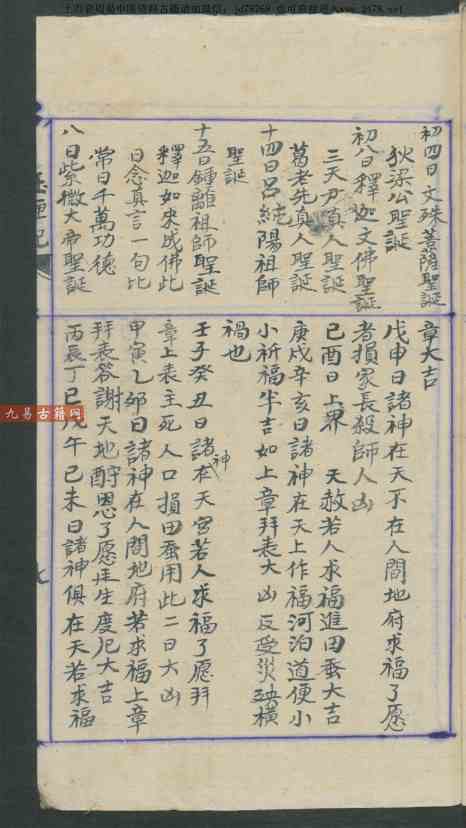 初四日文殊菩薩聖誕
狄梁公聖誕
初八日釋迦文佛聖誕
三天 真人聖誕
葛老先真人聖誕
十四日呂純陽祖師
聖誕
十五日鍾離祖師聖誕
釋迦如來成佛此
日念真言一句比
常日千萬功德
八日紫微大帝聖誕
章大吉
戊申日諸神在天不在人間地府求福了愿
者損家長殺師人凶
己酉日上界 天赦若人求福進田蚕大吉
庚戌辛亥日諸神在天上作福河泊道便小
小祈福半吉如上章拜表大凶反受災殃橫
禍也
壬子癸丑日諸神在天宮若人求福了愿拜
章上表主死人口損田蚕用此二日大凶
甲寅乙卯日諸神在人間地府若求福上章
拜表答謝天地酧恩了愿 生度厄大吉
丙辰丁巳戊午己未日諸神俱在天若求福
九易古籍网